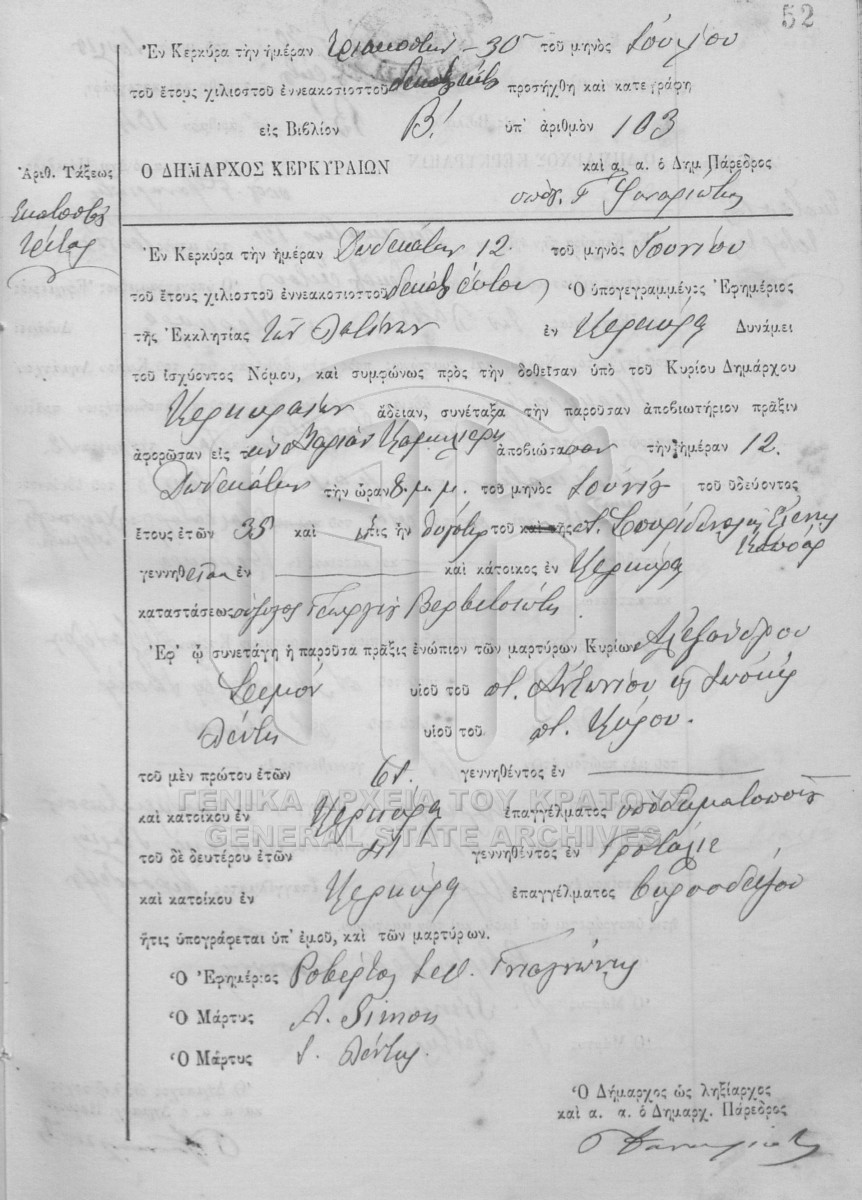 52
Ἐν Κερκύρᾳ τὴν ἡμέραν τριακοστὴν -30 τοῦ μηνὸς Ἰουλίου
τοῦ ἔτους χιλιοστοῦ ἐννεακοσιοστοῦ προσήχθη καὶ κατεγράφη
εἰς Βιβλίον Β! ὑπ' ἀριθμὸν 103
Ἀριθ. Τάξεως
Ο ΔΗΜΑΡΧΟΣ ΚΕΡΚΥΡΑΙΩΝ καὶ α. α. ὁ Δημ Πάρεδρος
ὑπογ. Γ Φαναριώτης
Ἑκατοστὸς
τρίτος
Ἐν Κερκύρᾳ τὴν ἡμέραν Δωδεκάτην 12. τοῦ μηνὸς Ἰουνίου
τοῦ ἔτους χιλιοστοῦ ἐννεακοσιοστοῦ δεκάτου ἕκτου Ὁ ὑπογεγραμμένος Ἐφημέριος
τῆς Ἐκκλησίας τῶν Λατίνων ἐν Κερκύρᾳ Δυνάμει
τοῦ ἰσχύοντος Νόμου, καὶ συμφώνως πρὸς τὴν δοθεῖσαν ὑπὸ τοῦ Κυρίου Δημάρχου
Κερκυραίων ἄδειαν, συνέταξα τὴν παροῦσαν ἀποβιωτήριον πρᾶξιν
ἀφορῶσαν εἰς τὴν Μαρίαν ἀποβιώσασαν τὴν ἡμέραν 12.
Δωδεκάτην τὴν ὥραν 8. μ. μ. τοῦ μηνὸς Ἰουνίου τοῦ ὁδεύοντος
ἔτους ἐτῶν 35 καὶ ἥτις ἦν θυγάτηρ τοῦ καὶ τῆς π. Σπυρίδωνος καὶ Ἑλένης
γεννηθεῖσα ἐν καὶ κάτοικος ἐν Κερκύρᾳ
καταστάσεως σύζυγος Γεωργίου
Ἐφ' ᾧ συνετάγη ἡ παροῦσα πρᾶξις ἐνώπιον τῶν μαρτύρων Κυρίων Ἀλεξάνδρου
Σιμόν υἱοῦ τοῦ π. Ἀντωνίου
υἱοῦ τοῦ π. Κάρου.
τοῦ μὲν πρώτου ἐτῶν 61. γεννηθέντος ἐν
ΓΕΝΙΚΑ ΑΡΧΕΙΑ ΤΟΥ ΚΡΑΤΟΥΣ
καὶ κατοίκου ἐν Κερκύρᾳ ἐπαγγέλματος ὑποδηματοποιοῦ
GENERAL STATE ARCHIVES
τοῦ δὲ δευτέρου ἐτῶν 41 γεννηθέντος ἐν
καὶ κατοίκου ἐν Κερκύρᾳ ἐπαγγέλματος βυρσοδέψου
ἥτις ὑπογράφεται ὑπ' ἐμοῦ, καὶ τῶν μαρτύρων.
Ὁ Ἐφημέριος Ροβέρτος
Ὁ Μάρτυς A. Simon
Ὁ Μάρτυς
Ὁ Δήμαρχος ὡς ληξίαρχος
καὶ α. α. ὁ Δημαρχ. Πάρεδρος
Γ Φαναριώτης